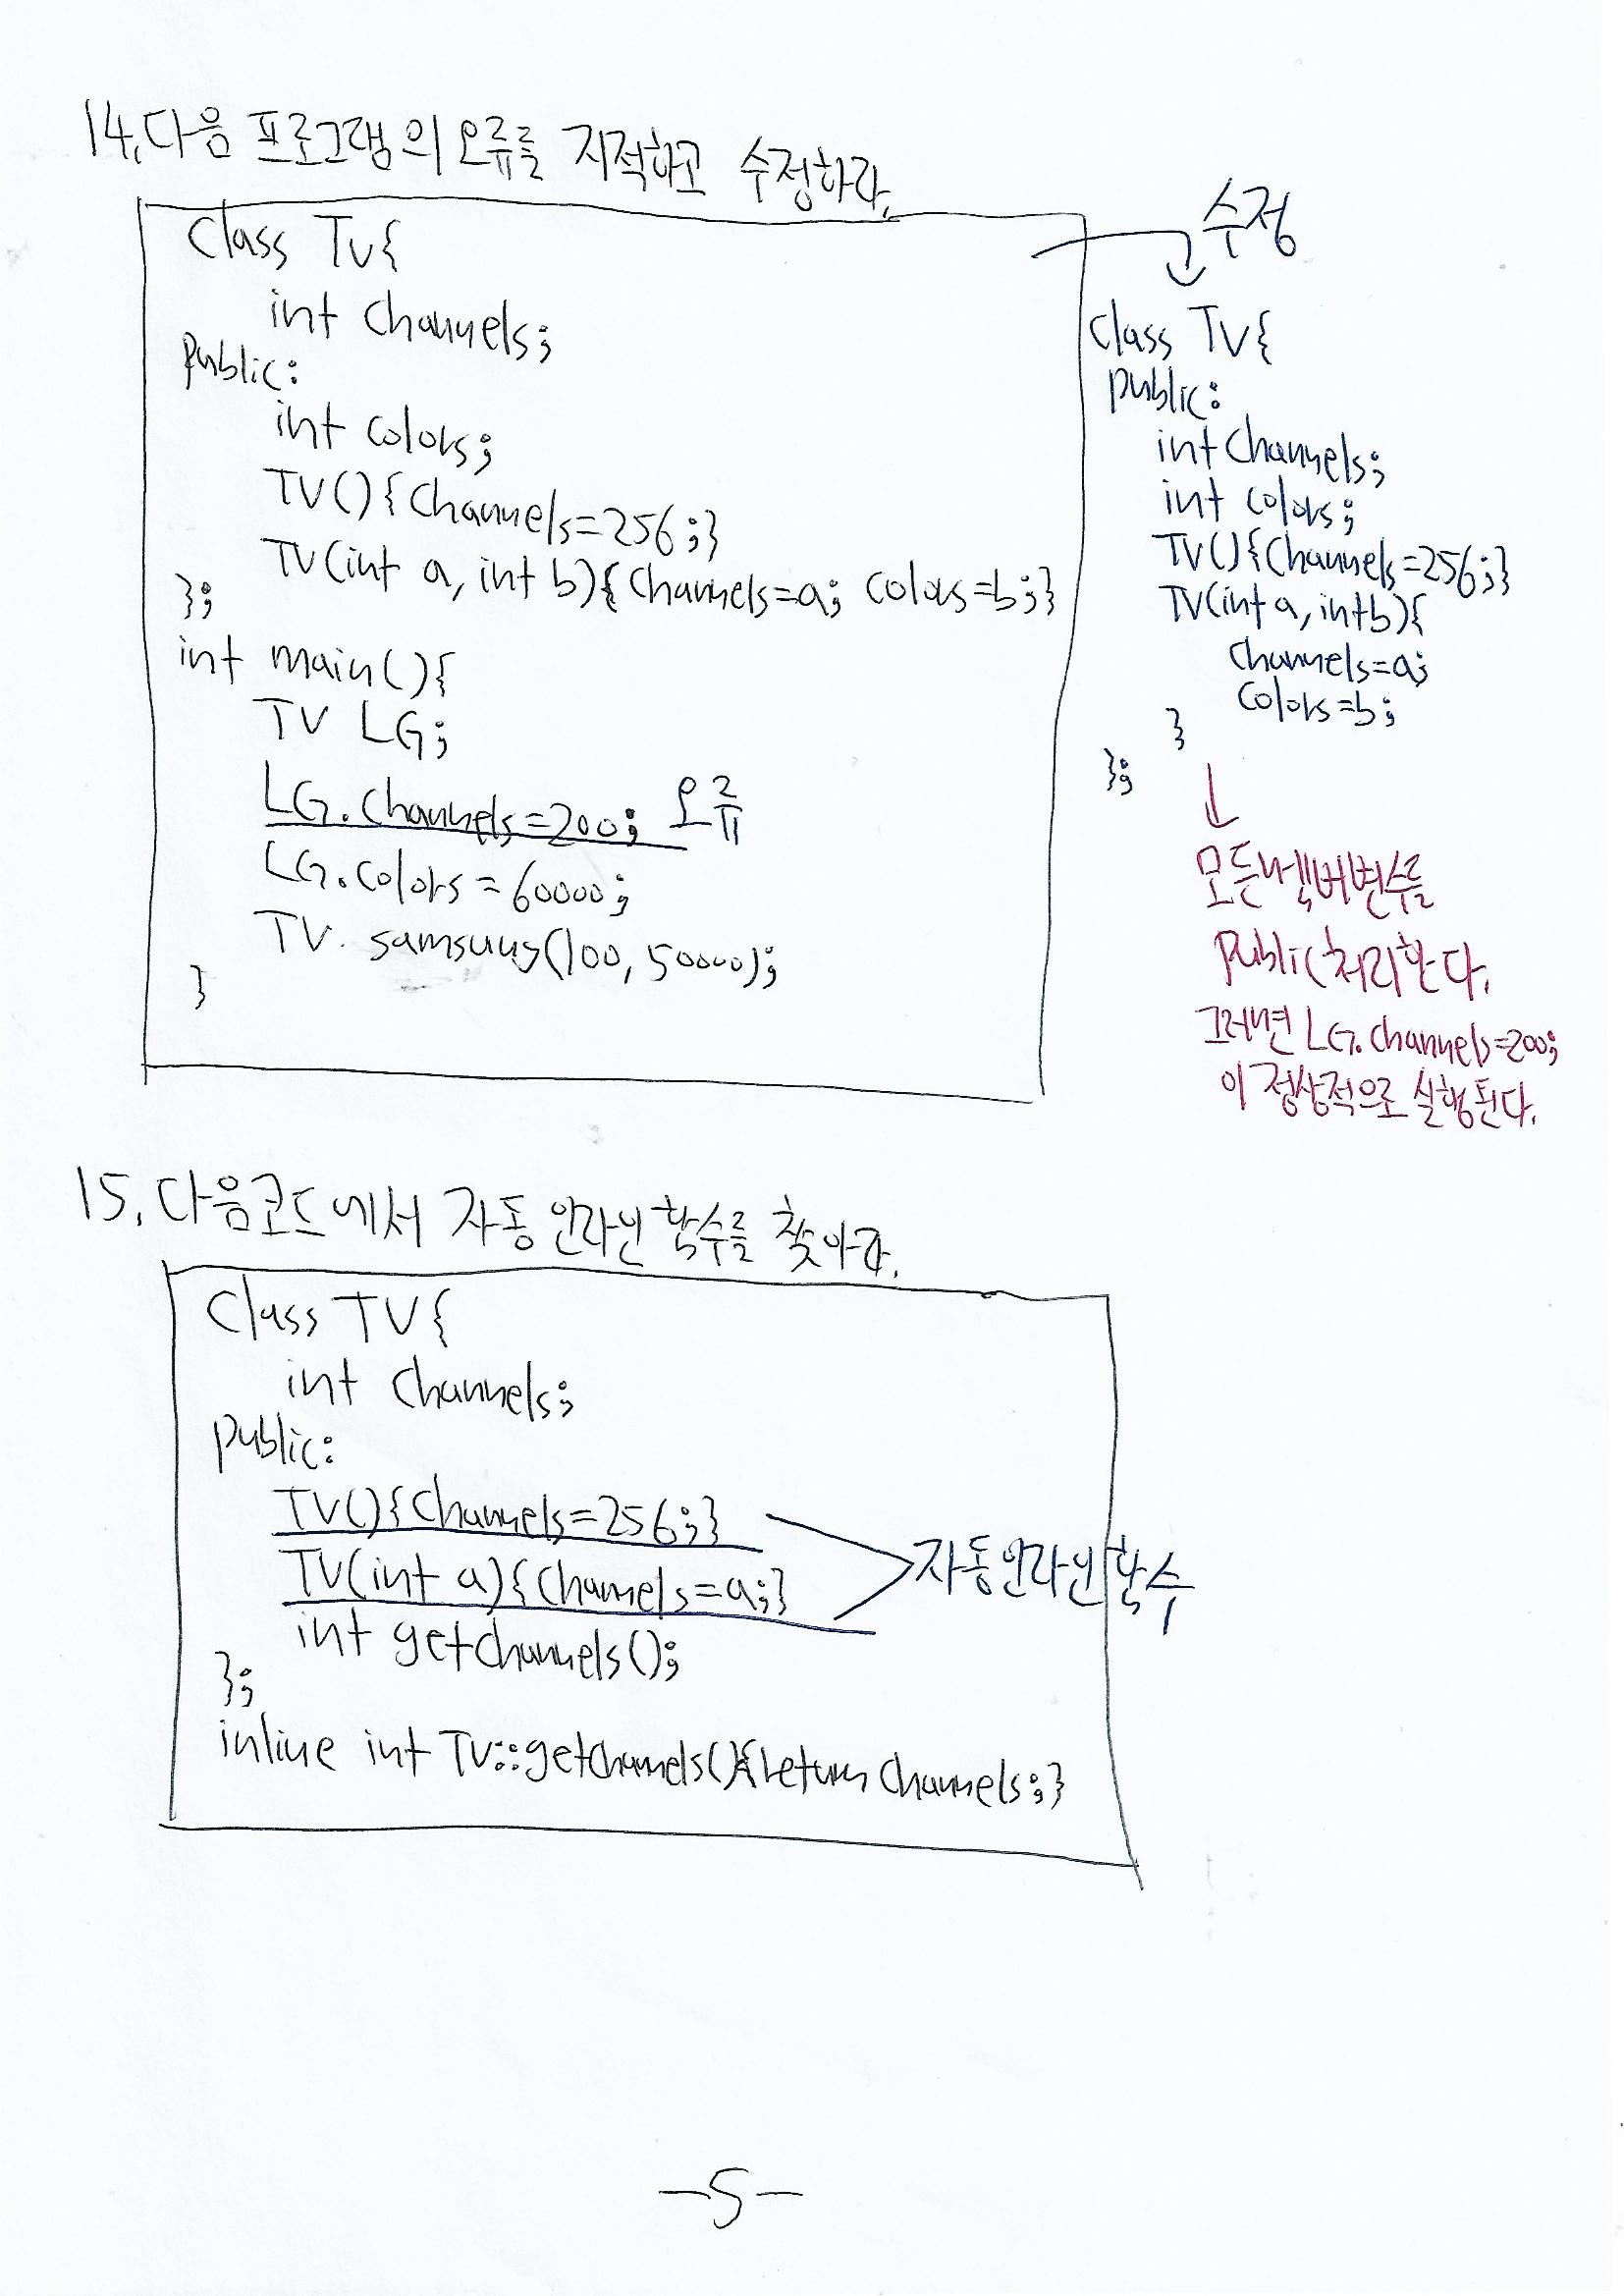 14. 다음 프로그램의 오류를 지적하고 수정하라.
class TV{
int channels;
public:
int colors;
TV(){channels=256;}
TV(int a, int b){channels=a; colors=b;}
};
int main(){
TV LG;
LG.channels=200; 오류
LG.colors=60000;
TV samsung(100, 50000);
}
수정
class TV{
public:
int channels;
int colors;
TV(){channels=256;}
TV(int a, int b){
channels=a;
colors=b;
}
};
모든 멤버변수를
public처리한다.
그러면 LG.channels=200;
이 정상적으로 실행된다.
15. 다음코드에서 자동 인라인 함수를 찾아라.
class TV{
int channels;
public:
TV(){channels=256;}
TV(int a){channels=a;}
자동 인라인 함수
int getchannels();
};
inline int TV::getchannels(){return channels;}
-5-